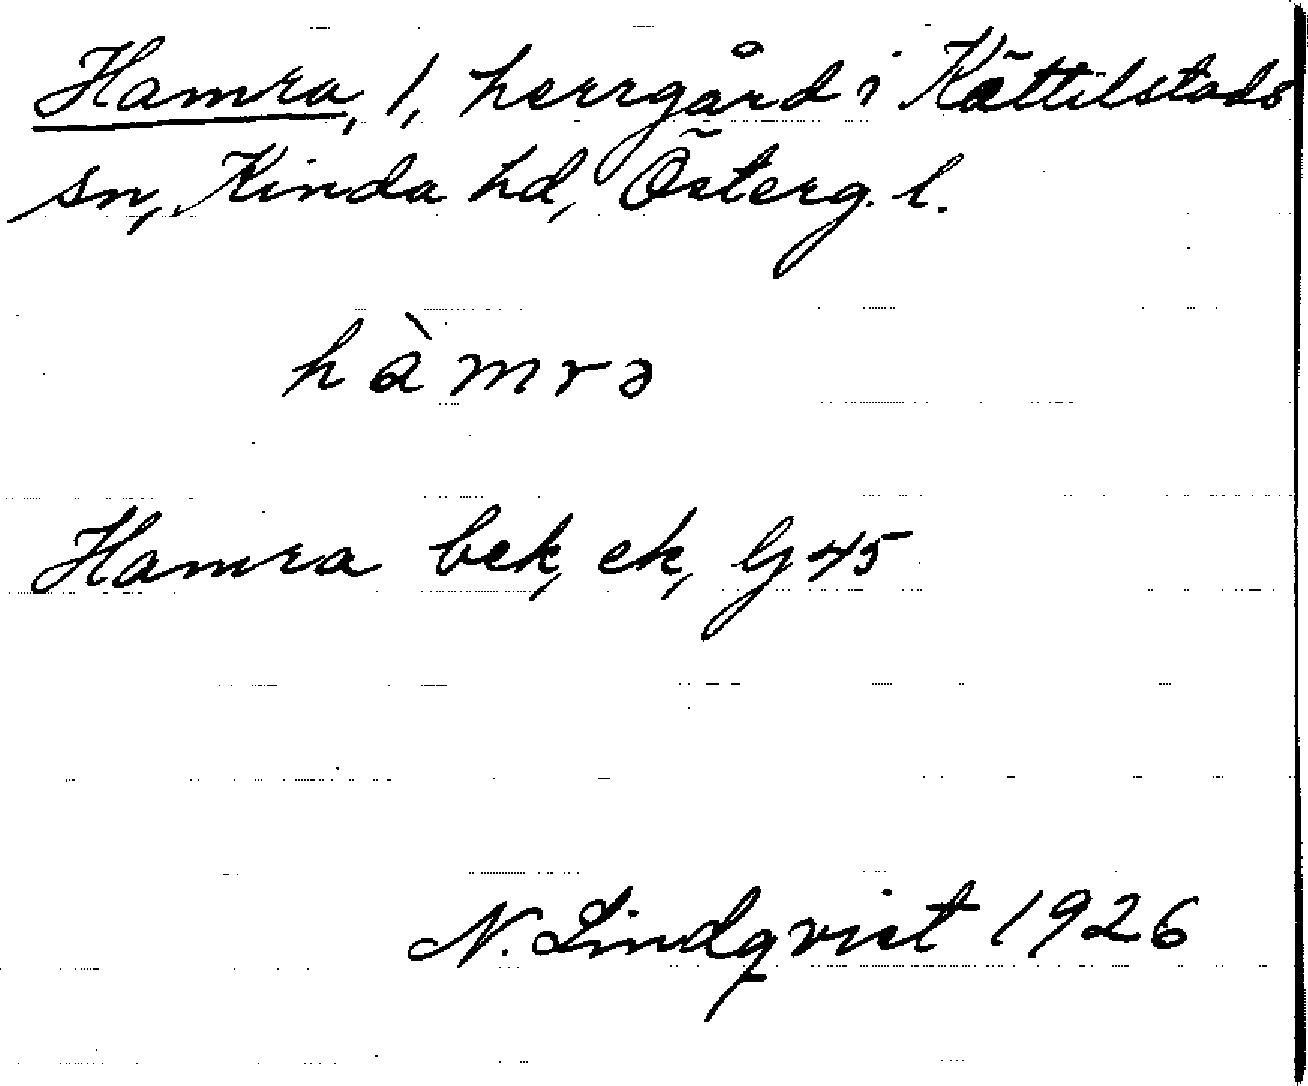 Hamra, 1, herrgård i Kättilstads
sn, Kinda hd, Österg. l.
hàmrə
Hamra bek, ek, G 45
N. Lindqvist 1926